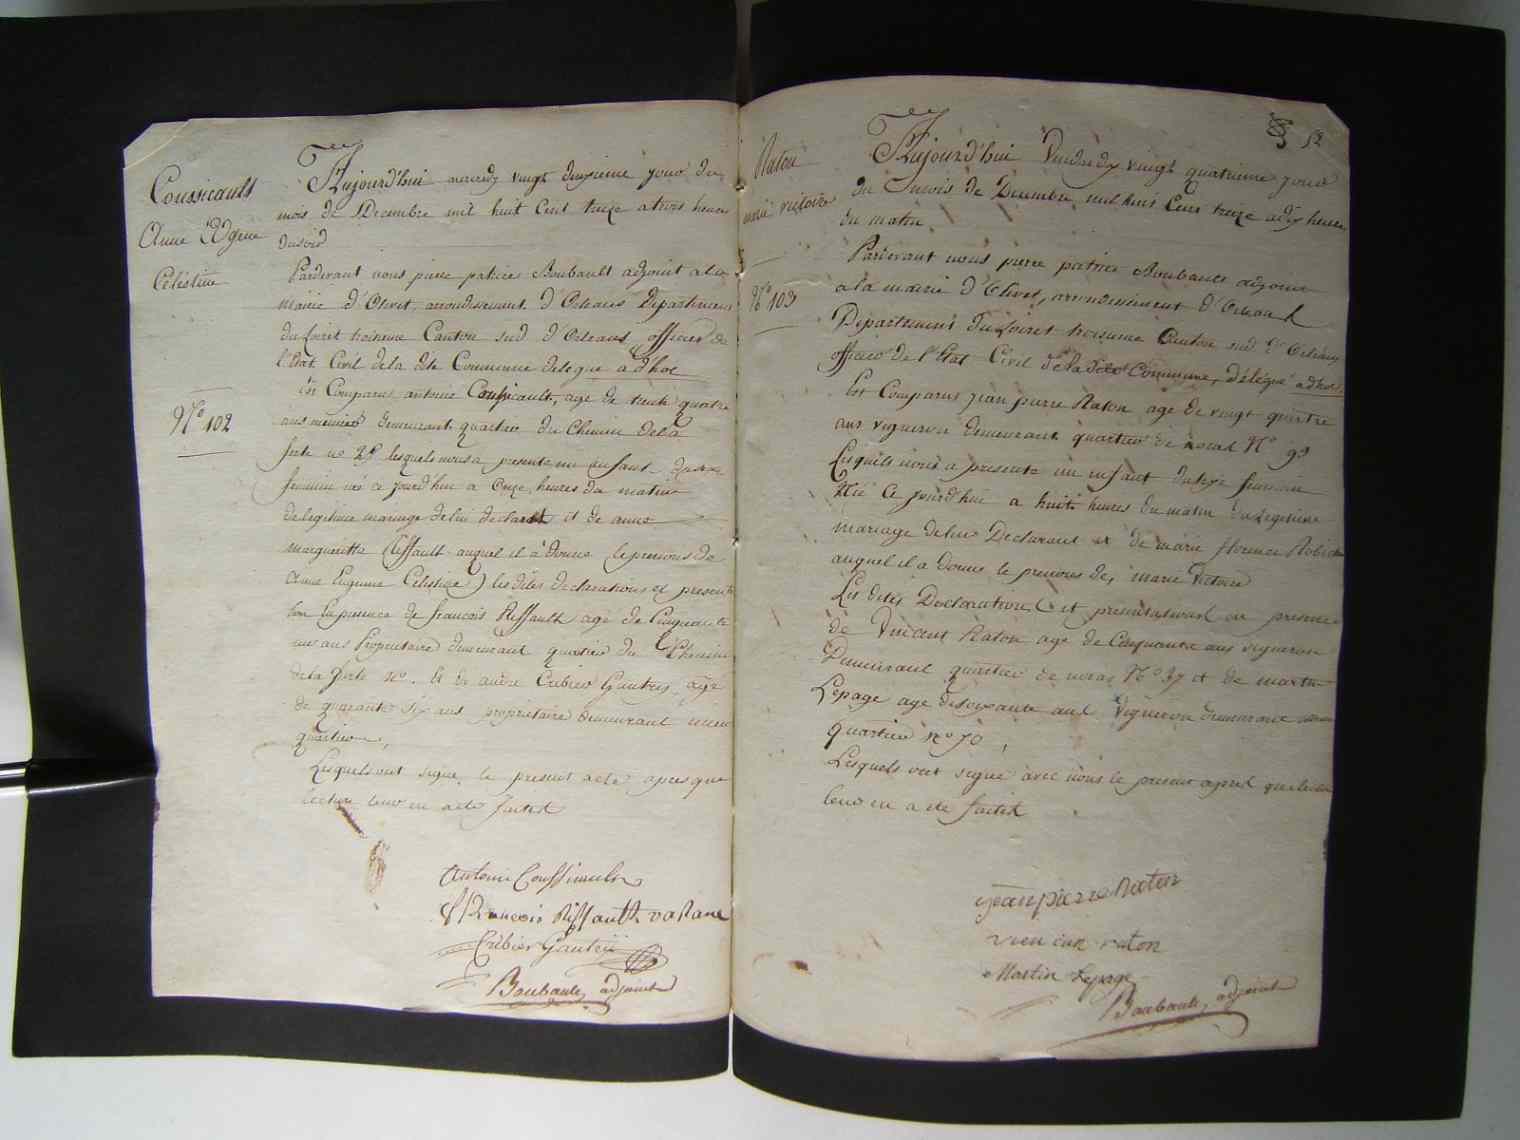 Coussicault
Anne Eugenie
Célestine
N.º 102
Aujourd'hui mercredy vingt deuxieme jour du
mois de Decembre mil huit Cent treize a trois heures
du soir
Pardevant nous pierre patrice Boubault adjoint a la
mairie d'Olivet, arrondissement d'Orleans Departement
du Loiret troisieme Canton sud d'Orleans officier de
l'Etat Civil de la dite Commune delegué ad hoc
Est Comparus, antoine Coussicault, age de trente quatre
ans meunier demeurant quartier du Chemin de la
ferte no lesquels nous a presente un enfant du sexe
feminin né ce jourd'hui a Onze heures du matin
de legitime mariage de lui declarant et de anne
margueritte Riffault auquel il à donné le prenoms de
Anne Eugenie Celestine) les dites declarations et present
tion en presence de francois Riffault agé de Cinquante
ans Proprietaire demeurant quartier du Chemin
de la ferte no. et de andre Cribier Gautry, agé
de quarante six ans proprietaire demeurant meme
quartier,
Lesquels ont signé le present acte apres que
lecture leur en a ete faitte
Antoine Coussicault
François Riffault
Cribier Gautry
Boubault, adjoint
52
Raton
marie victoire
N.º 103
Aujourd'hui Vendredy vingt quatrieme jour
du mois de Decembre mil huit Cent treize a dix heures
du matin
Pardevant nous pierre patrice Boubault adjoint
a la mairie d'Olivet, arrondissement d'Orleans
Departement du Loiret troisieme Canton sud d'Orleans
officier de l'Etat Civil de la dite Commune, délégué ad hoc
Est Comparus jean pierre Raton age de vingt quatre
ans vigneron demeurant quartier de noras N.º 99
Lesquels nous a presente un enfant du sexe feminin
Né Ce jourd'hui a huit heures du matin de legitime
mariage de lui Declarant et de marie florence Robi
auquel il a donné le prenoms de, marie Victoire
Les dites Declaration et presentation en presence
de Vincent Raton age de Cinquante ans vigneron
Demeurant quartier de noras N.º 37 et de martin
Lepage age de soixante ans Vigneron demeurant meme
quartier no 70,
Lesquels ont signé avec nous le present apres que lecture
leur en a ete faitte
jean pierre Raton
viencan raton
Martin Lepage
Boubault, adjoint